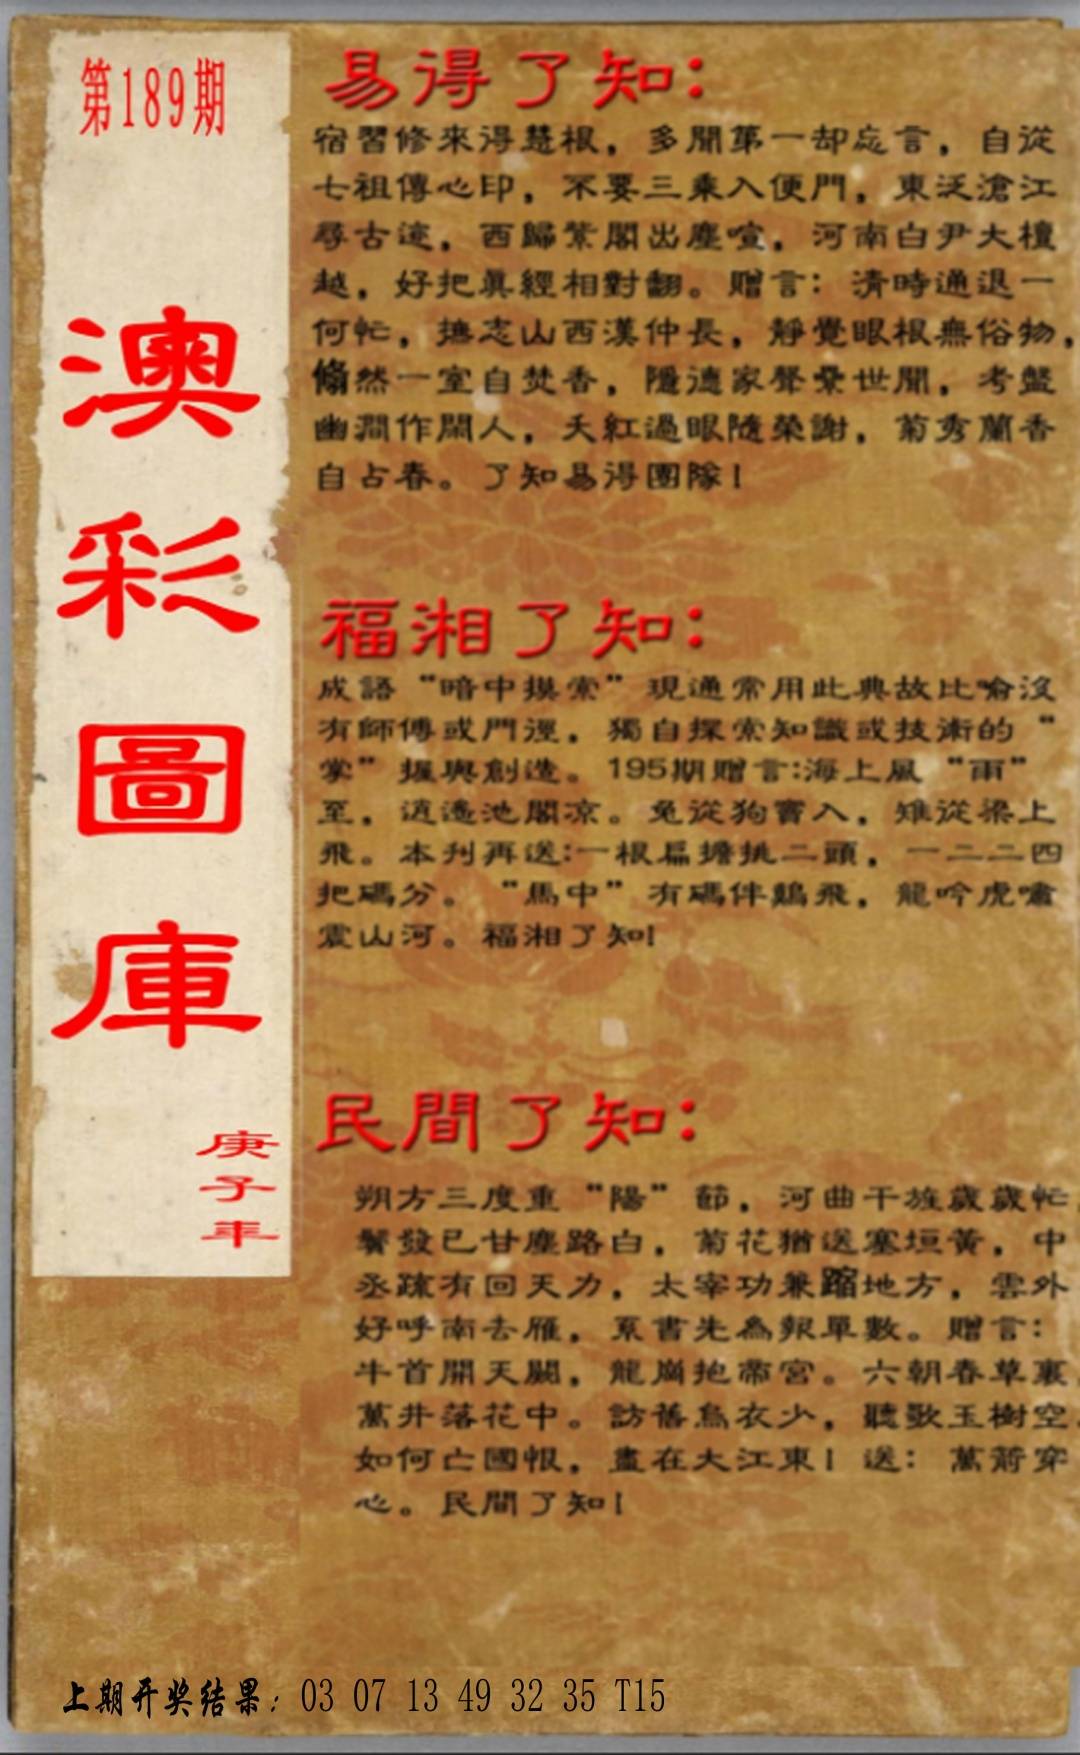 第189期
澳彩圖庫
庚子年
易得了知：
宿習修來得慧根，多聞第一却忘言，自從
七祖傳心印，不要三乘入便門，東泛滄江
尋古迹，西歸紫閣出塵喧，河南白尹大檀
越，好把眞經相對翻。贈言：清時通退一
何忙，撫志山西漢仲長，靜覺眼根無俗物，
翛然一室自焚香，隱德家聲叅世聞，考盤
幽澗作閑人，夭紅過眼隨榮謝，菊秀蘭香
自占春。了知易得團隊！
福湘了知：
成語“暗中摸索”現通常用此典故比喻沒
有師傅或門逕，獨自探索知識或技術的“
掌”握與創造。195期贈言:海上風“雨”
至，逍遙池閣凉。兔從狗竇入，雉從梁上
飛。本刊再送:一根扁擔挑二頭，一二二四
把碼分。“馬中”有碼伴鷄飛，龍吟虎嘯
震山河。福湘了知!
民間了知：
朔方三度重“陽”節，河曲干旌歲歲忙
鬢發已甘塵路白，菊花猶送塞垣黃，中
丞疏有回天力，太宰功兼蹜地方，雲外
好呼南去雁，系書先為報單數。贈言：
牛首開天闕，龍崗抱帝宮。六朝春草裏，
萬井落花中。訪舊烏衣少，聽歌玉樹空。
如何亡國恨，盡在大江東！送：萬箭穿
心。民間了知！
上期开奖结果：03 07 13 49 32 35 T15